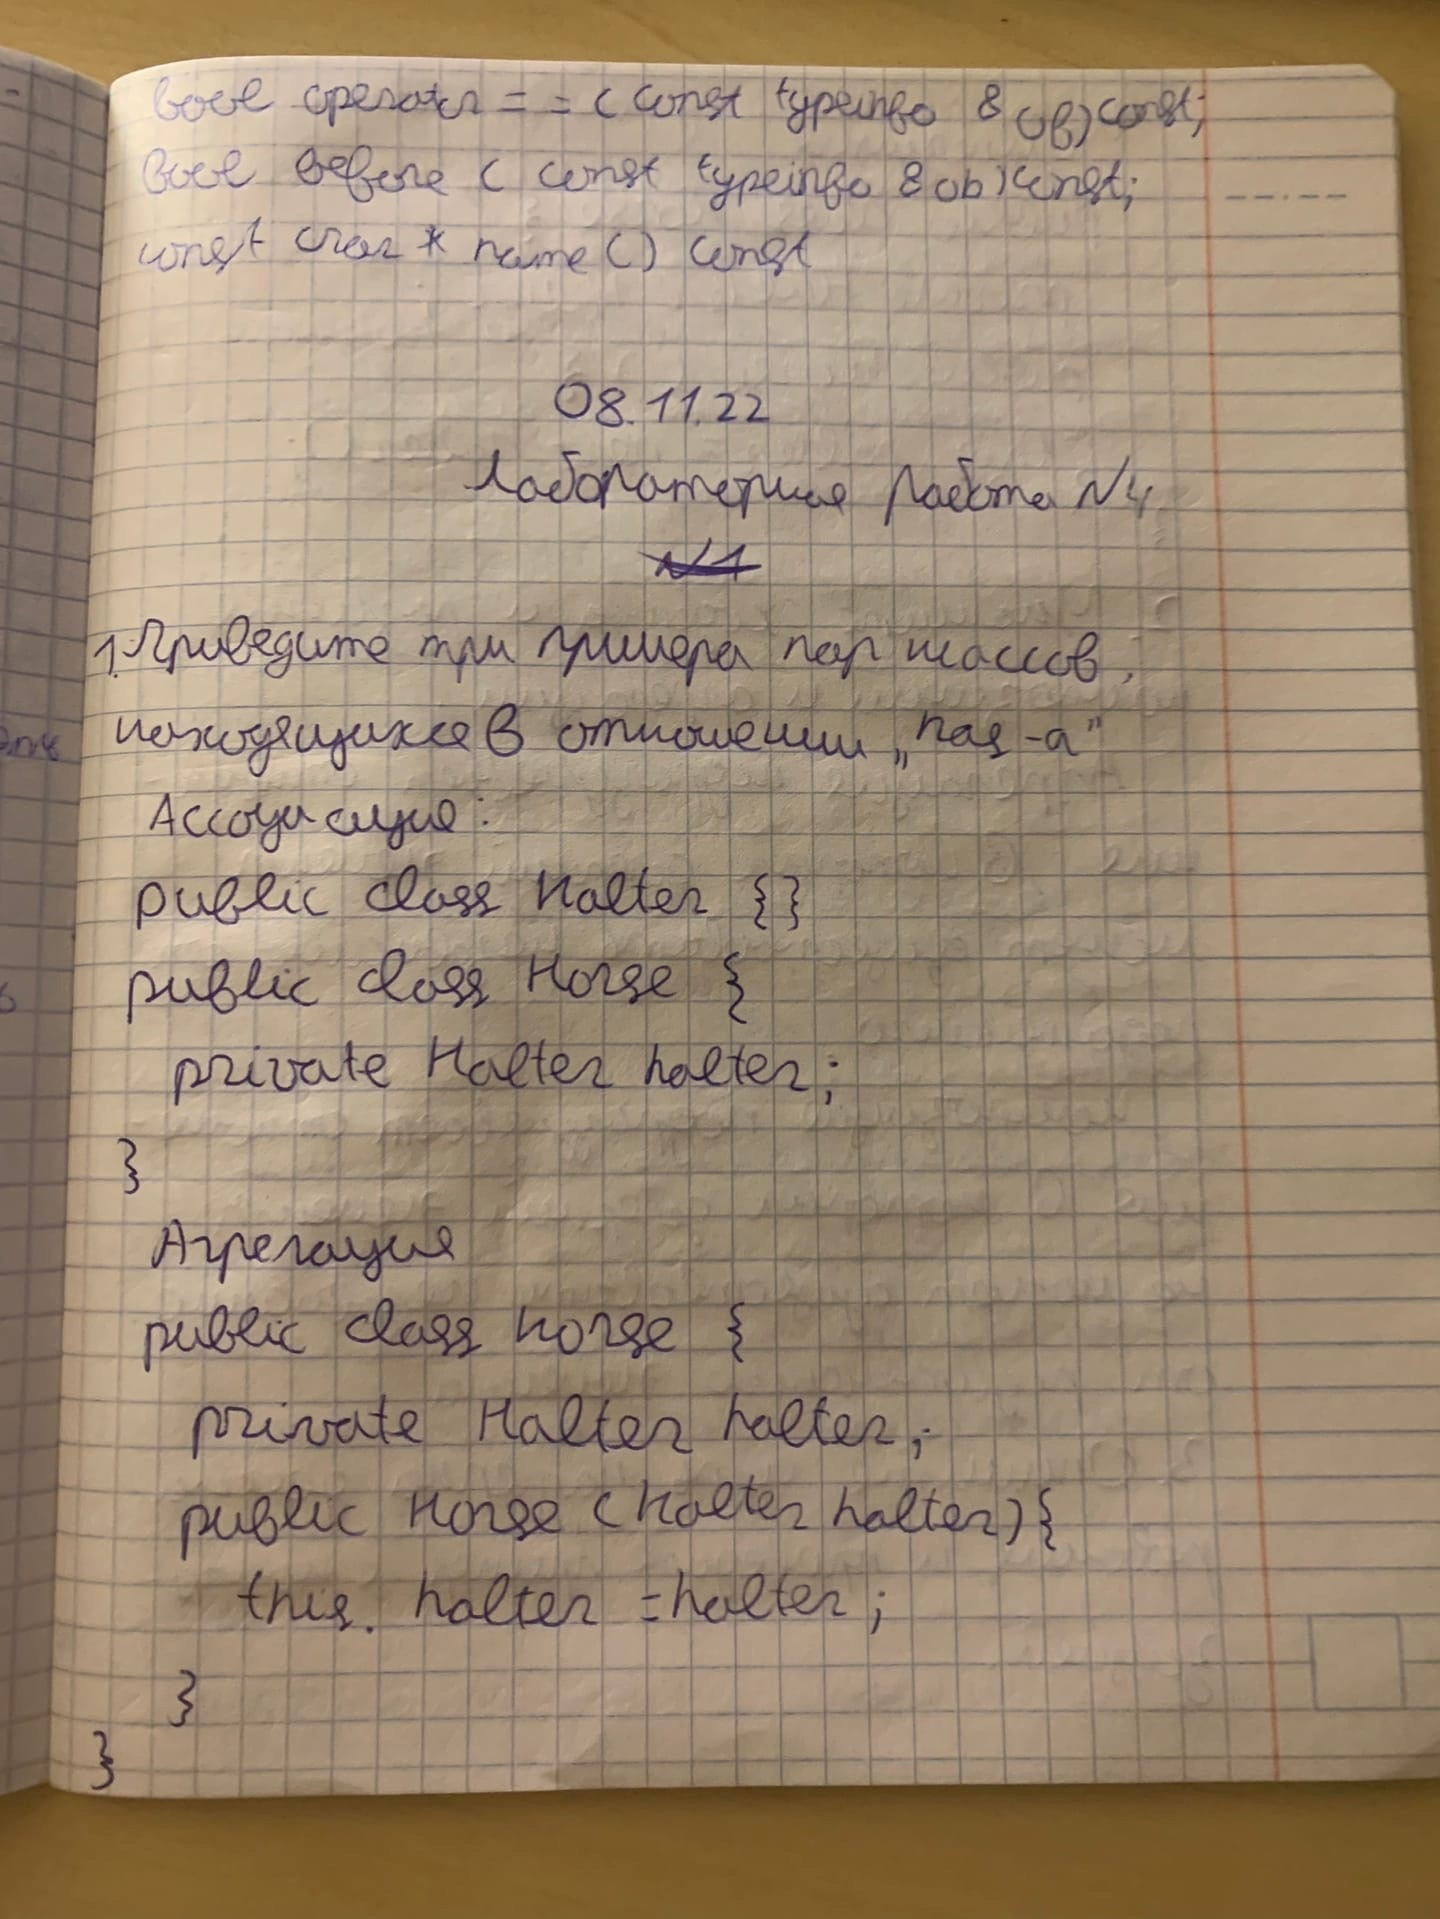 bool operator = = ( const typeinfo & ob) const;
bool before ( const typeinfo & ob) const;
const char * name ( ) const
08.11.22
Лабораторная работа №4
№1
1. Приведите три примера пар классов,
находящихся в отношении „has-a"
Ассоциация:
public class Halter {}
public class Horse {
private Halter halter;
}
Агрегация
public class Horse {
private Halter halter;
public Horse (Halter halter) {
this. halter = halter;
}
}